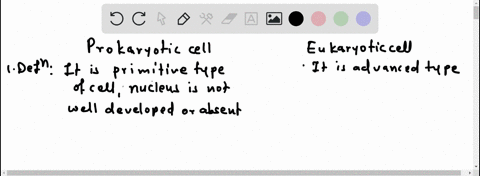 Prokaryotic cell
Eukaryotic cell
1. Defⁿ: It is primitive type
of cell, nucleus is not
well developed or absent
· It is advanced type